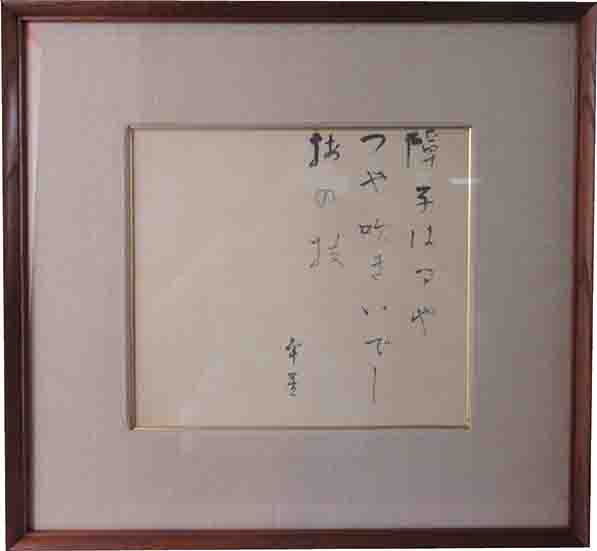 障子はるや
つや吹きいでし
梅の枝
犀星